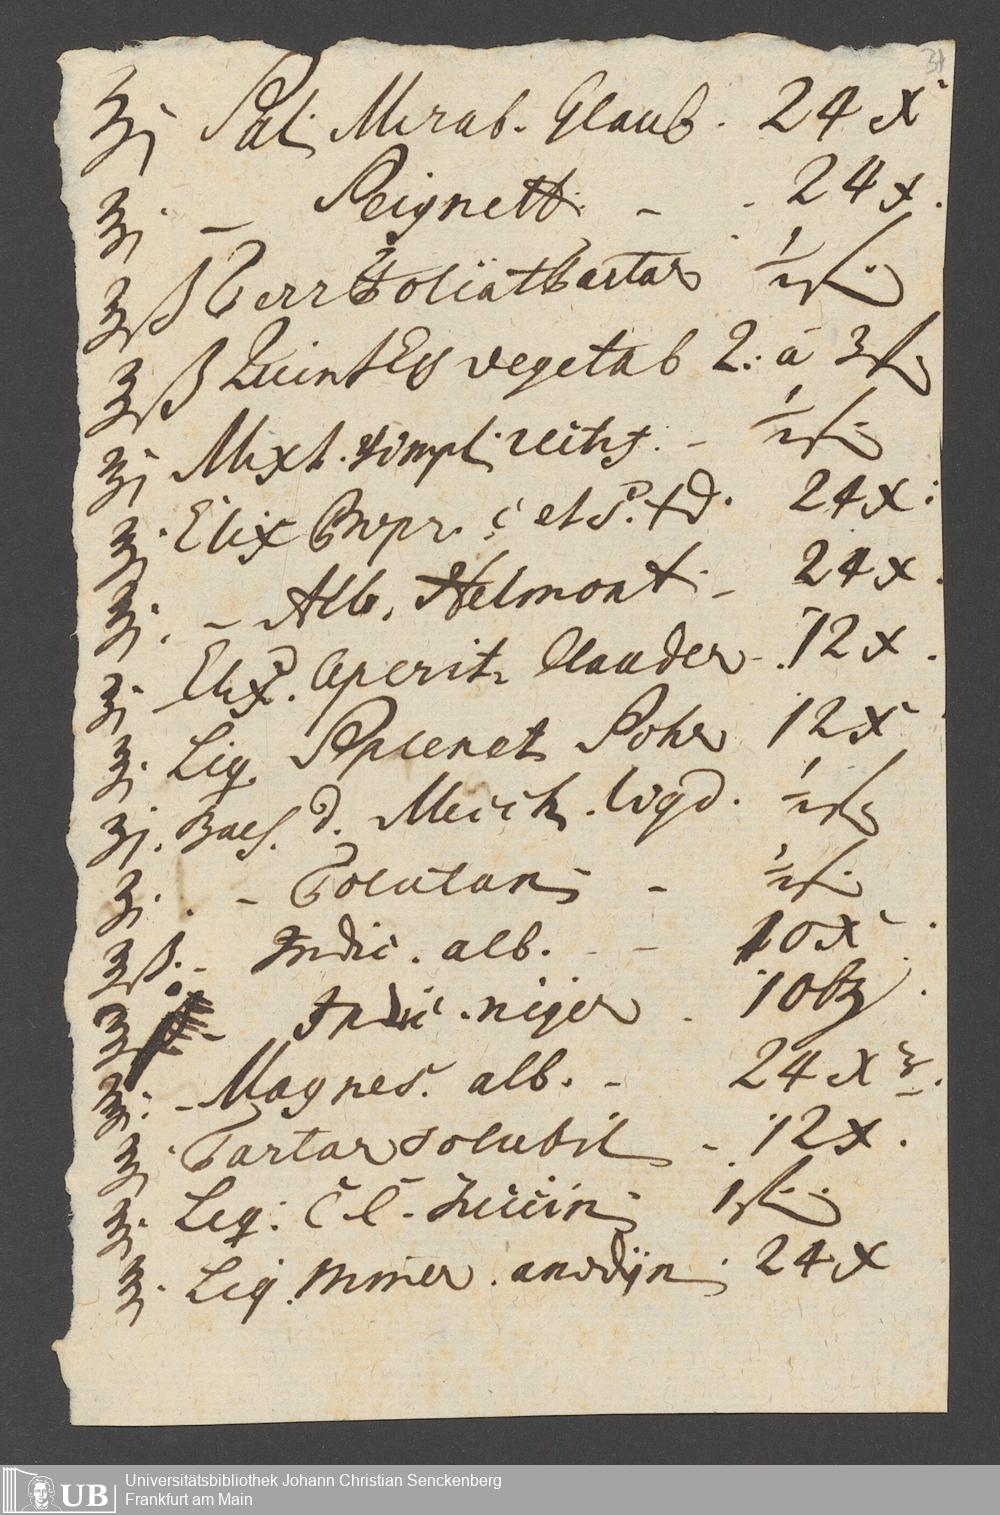 31
℥j Sal. Mirab. Glaub. 24 x
℥j. – Seignett. – . 24 x.
℥ß Terr foliat Tartar ½ fl.
℥ß Quint Ess vegetab 2. à 3 fl
℥j Mixt. simpl. – ½ fl.
℥j. Elix Propr. c et S. . 24 x.
℥j. – Alb. Helmont. – 24 x.
℥j Elix. Aperit. Clauder – 12 x.
℥j. Liq. Sohr 12 x
℥j. Bals. d. Mecch. liqd. ½ fl
℥j. – Tolutan. – ½ fl.
℥ß. – Indic. alb. – 10 x
– Indic. niger . 10
℥j. – Magnes. alb. – 24 x
℥j Tartar solubil – 12 x.
℥j. Liq: C C. Succin. 1 fl.
℥j. Liq. miner. anodÿn. 24 x
UB
Universitätsbibliothek Johann Christian Senckenberg
Frankfurt am Main